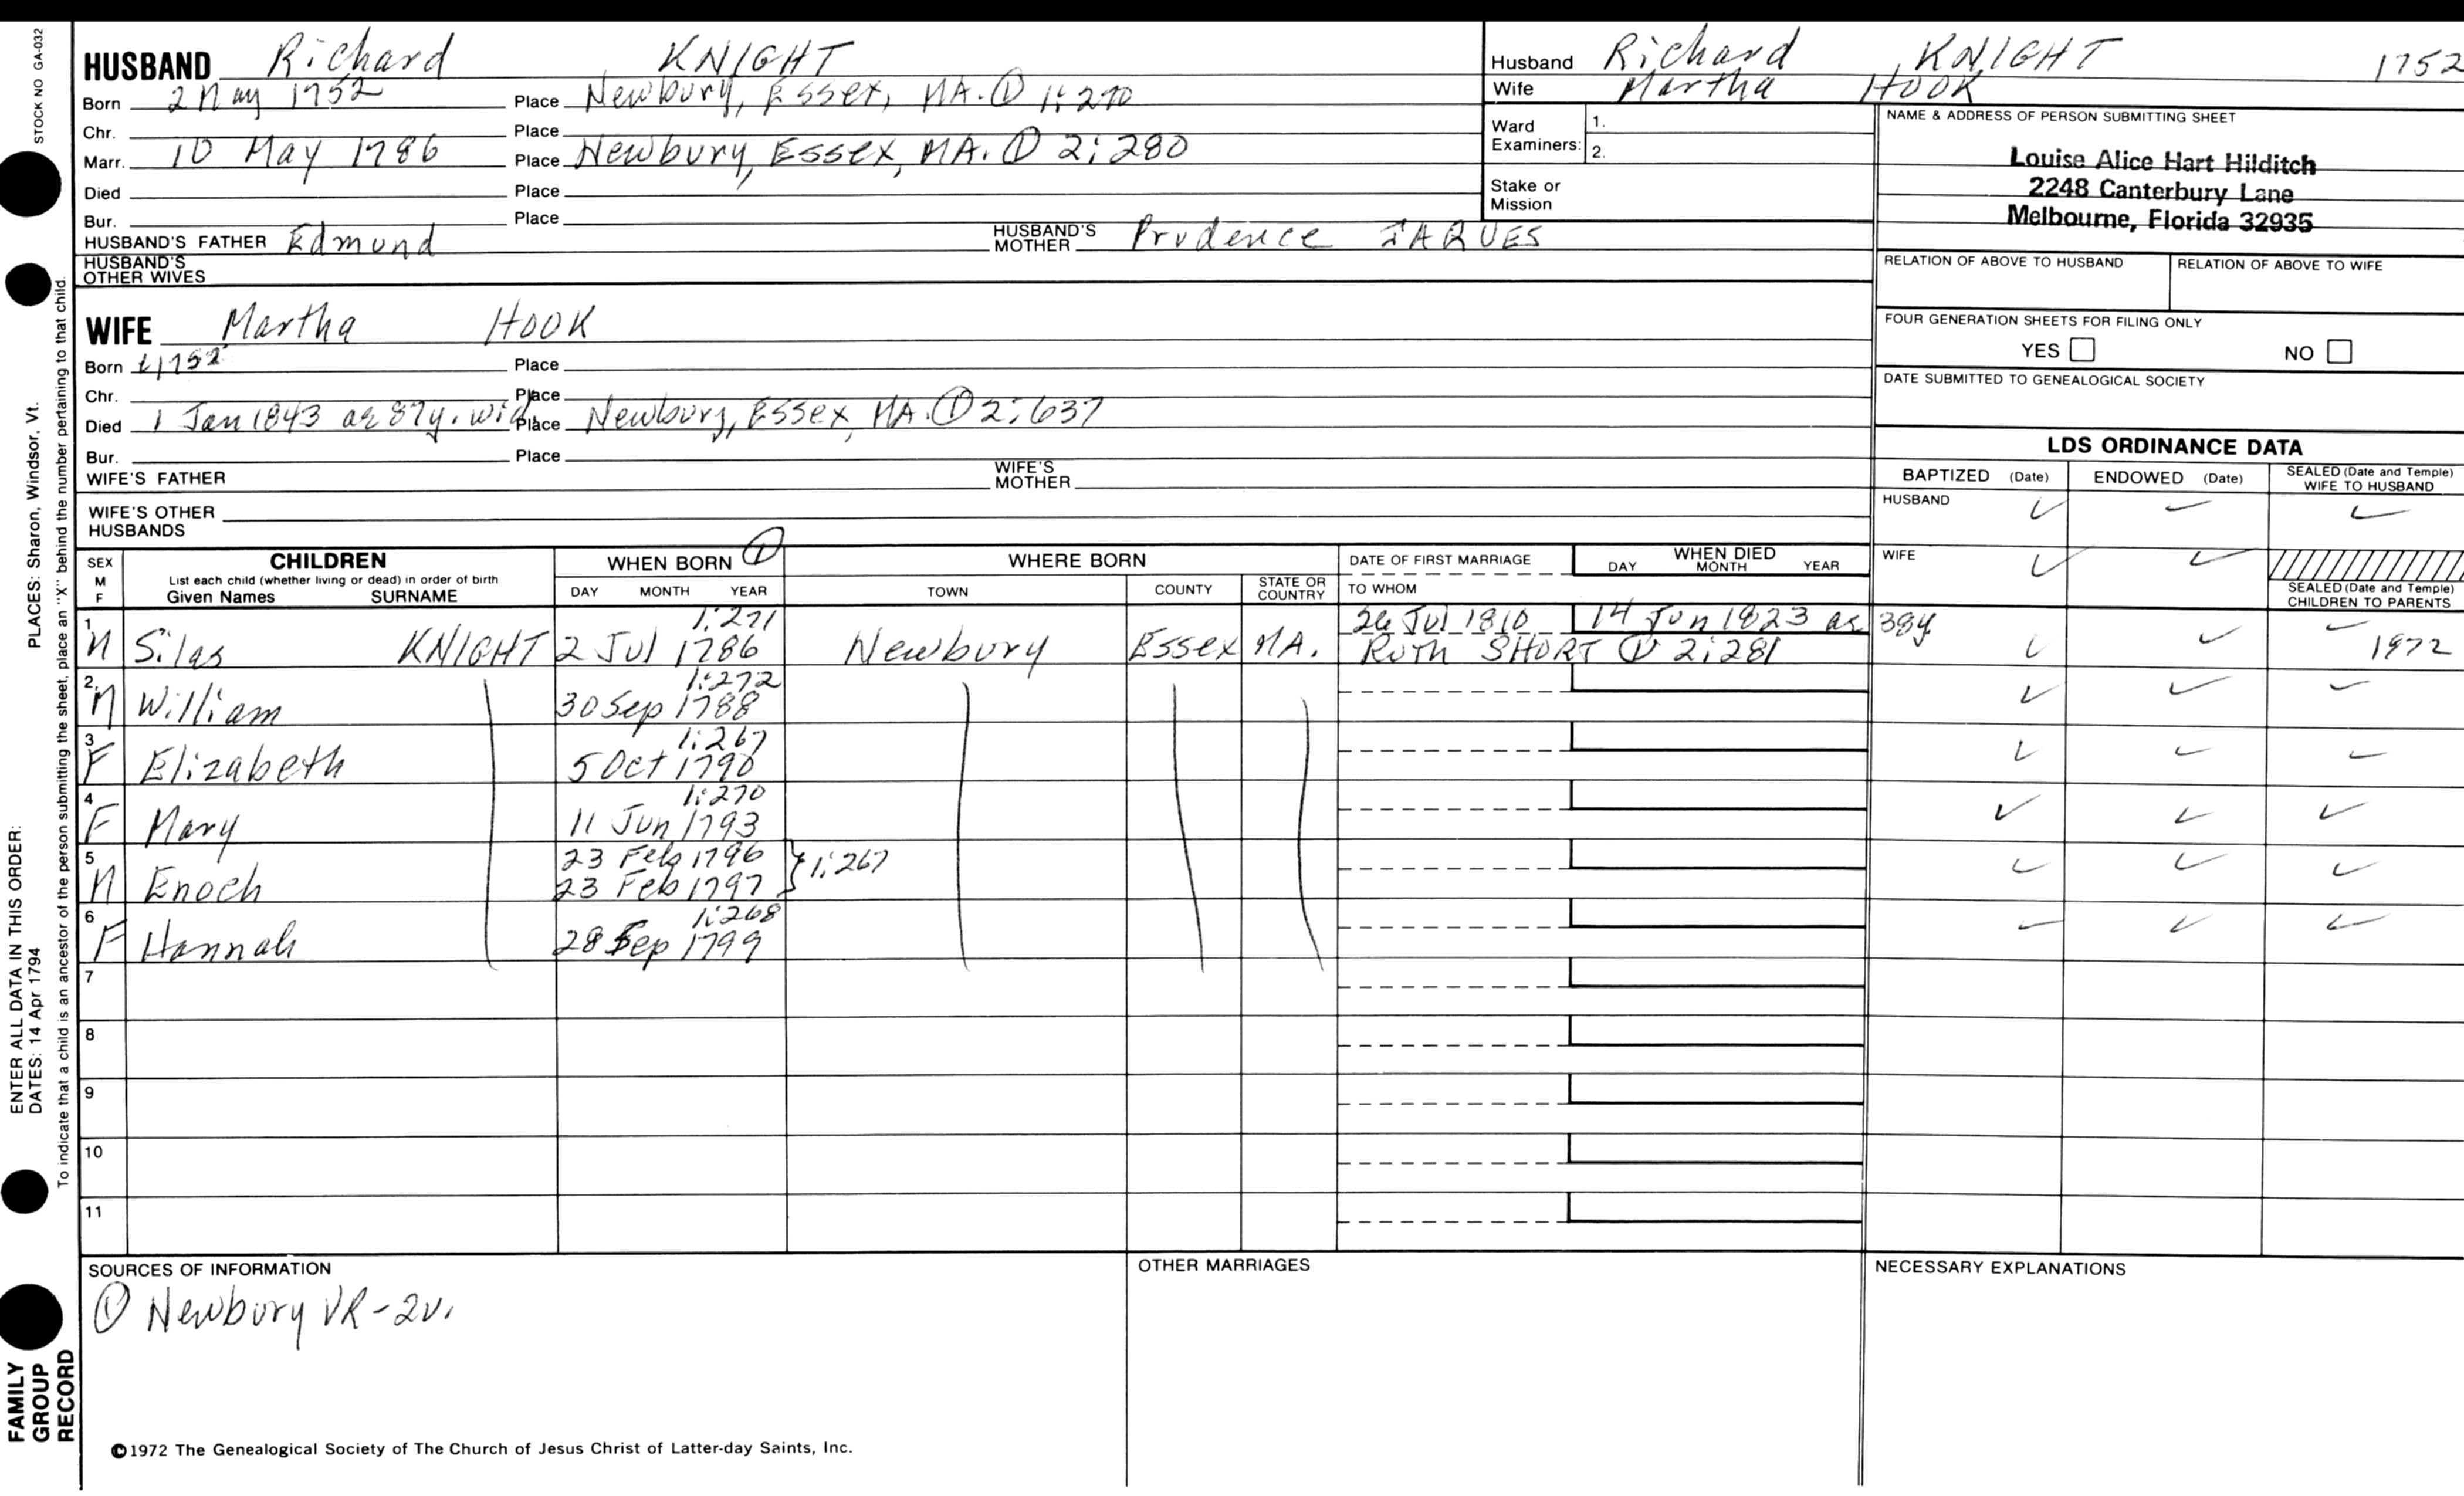 STOCK NO GA-032
HUSBAND Richard KNIGHT
Born 2 May 1752 Place Newbury, Essex, MA. ① 1:270
Chr. Place
Marr. 10 May 1786 Place Newbury, Essex, MA. ① 2:280
Died Place
Bur. Place
HUSBAND'S FATHER Edmund HUSBAND'S MOTHER Prudence JAQUES
HUSBAND'S OTHER WIVES
Husband Richard KNIGHT 1752
Wife Martha HOOK
Ward Examiners: 1.
2.
Stake or Mission
NAME & ADDRESS OF PERSON SUBMITTING SHEET
Louise Alice Hart Hilditch
2248 Canterbury Lane
Melbourne, Florida 32935
RELATION OF ABOVE TO HUSBAND RELATION OF ABOVE TO WIFE
FOUR GENERATION SHEETS FOR FILING ONLY
YES NO
DATE SUBMITTED TO GENEALOGICAL SOCIETY
WIFE Martha HOOK
Born 1752 Place
Chr. Place
Died 1 Jan 1843 ae 87y. wid. Place Newbury, Essex, MA. ① 2:637
Bur. Place
WIFE'S FATHER WIFE'S MOTHER
WIFE'S OTHER HUSBANDS
LDS ORDINANCE DATA
BAPTIZED (Date) ENDOWED (Date) SEALED (Date and Temple) WIFE TO HUSBAND
HUSBAND ✓ ✓ ✓
WIFE ✓ ✓
SEALED (Date and Temple) CHILDREN TO PARENTS
SEX M F CHILDREN
List each child (whether living or dead) in order of birth
Given Names SURNAME
WHEN BORN ①
DAY MONTH YEAR
WHERE BORN
TOWN COUNTY STATE OR COUNTRY
DATE OF FIRST MARRIAGE
TO WHOM
WHEN DIED
DAY MONTH YEAR
1 M Silas KNIGHT 1:271 2 Jul 1786 Newbury Essex MA. 26 Jul 1810 14 Jun 1823 ae 38y. ✓ ✓ ✓ 1972
Ruth SHORT ① 2:281
2. M William 1:272 30 Sep 1788 ✓ ✓ ✓
3 F Elizabeth 1:267 5 Oct 1790 ✓ ✓ ✓
4 F Mary 1:270 11 Jun 1793 ✓ ✓ ✓
5 M Enoch 23 Feb 1796 ✓ ✓ ✓
23 Feb 1797 } 1:267
6 F Hannah 1:268 28 Sep 1799 ✓ ✓ ✓
7
8
9
10
11
SOURCES OF INFORMATION
① Newbury VR-2v.
OTHER MARRIAGES
NECESSARY EXPLANATIONS
©1972 The Genealogical Society of The Church of Jesus Christ of Latter-day Saints, Inc.
ENTER ALL DATA IN THIS ORDER:
DATES: 14 Apr 1794
PLACES: Sharon, Windsor, Vt.
To indicate that a child is an ancestor of the person submitting the sheet, place an "X" behind the number pertaining to that child.
FAMILY
GROUP
RECORD